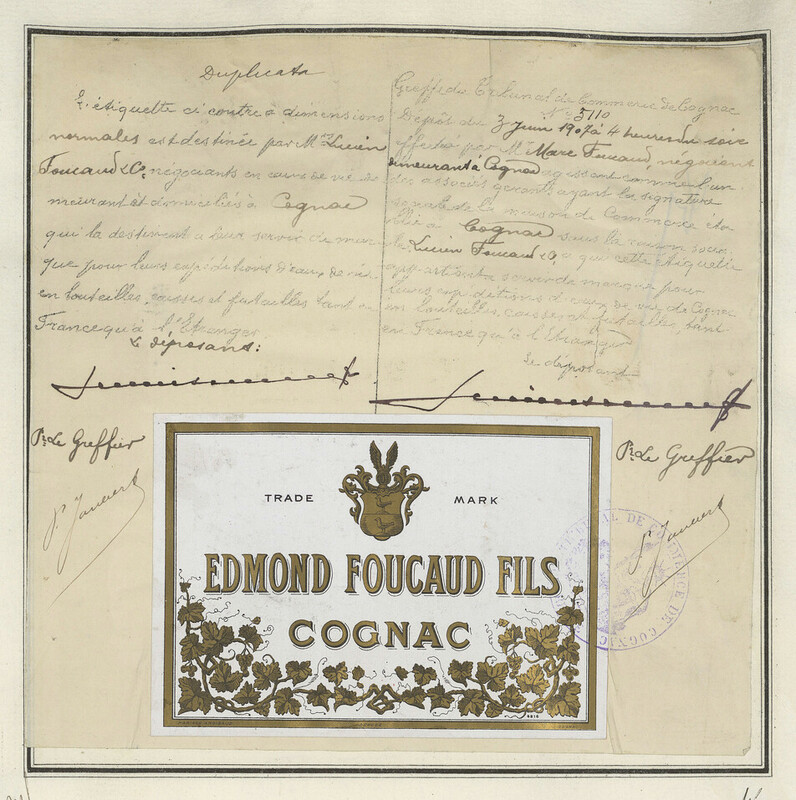 Duplicata
L'étiquette ci contre à dimensions
normales est destinée par Mrs Lucien
Foucaud & Co, négociants en eaux de vie de
meurant et domiciliés à Cognac
qui la destinent à leur servir de mar
que pour leurs expéditions d'eaux de vie
en bouteilles, caisses et futailles tant en
France qu'à l'Etranger
Le déposant:
Pr. Le Greffier
Greffe du Tribunal de Commerce de Cognac
No 5110
Dépôt du 3 Juin 1907 à 4 heures du soir
effectué par Mr Marc Foucaud, négociant
demeurant à Cognac agissant comme l'un
des associés gérants, ayant la signature
sociale de la maison de Commerce éta
blie à Cognac sous la raison socia
le Lucien Foucaud & Co, à qui cette étiquette
appartient à servir de marque pour
leurs expéditions d'eaux de vie de Cognac
en bouteilles, caisses et futailles, tant
en France qu'à l'Etranger
Le déposant
Pr. Le Greffier
TRADE MARK
EDMOND FOUCAUD FILS
COGNAC
TRIBUNAL DE COMMERCE DE COGNAC